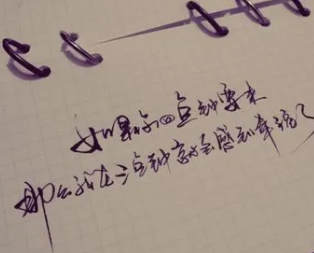 如果你四点钟要来
那么我在三点钟就会感到幸福了